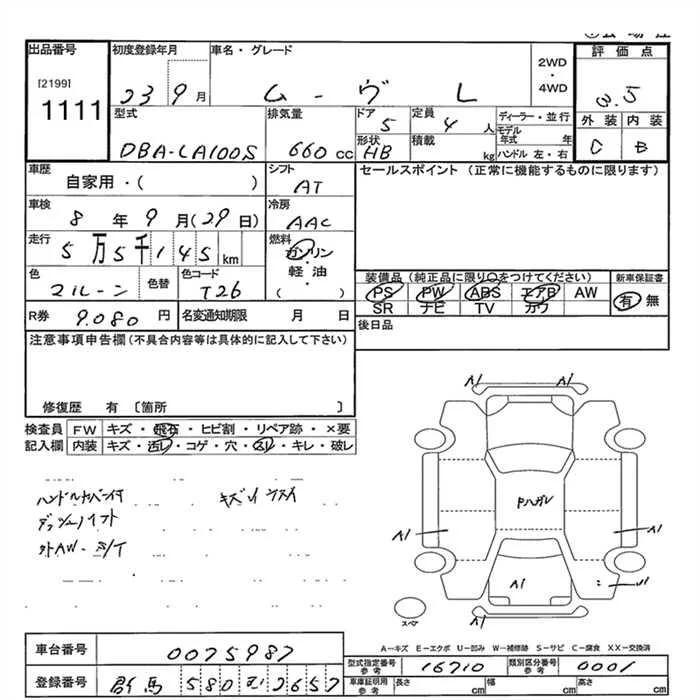 出品番号
[2199]
1111
初度登録年月
23 9月
車名・グレード
ムーヴ L
2WD
・
4WD
評価点
3.5
外装 内装
C B
型式
DBA-LA100S
排気量
660 cc
ドア
5
形状
HB
定員
4 人
積載
kg
ディーラー・並行
モデル年式 年
ハンドル 左・右
車歴
自家用・( )
シフト
AT
車検
8年9月(29日)
冷房
AAC
走行
5万5千145km
燃料
ガソリン
・
軽・油
( ・ )
色
マルーン
色替
色コード
T26
R券 9.080円
名変通知期限 月 日
セールスポイント(正常に機能するものに限ります)
装備品(純正品に限り〇をつけてください)
PS PW ABS エアB AW
SR ナビ TV カワ
新車保証書
有 無
後日品
注意事項申告欄(不具合内容等は具体的に記入して下さい)
修復歴 有 〔箇所 〕
検査員記入欄
FW キズ・飛石・ヒビ割・リペア跡・×要
内装 キズ・汚レ・コゲ・穴・スレ・キレ・破レ
ハンドルカバー付
キズ
A1 A1
A1
A1
A1
A1
スペア
A-キズ E-エクボ U-凹み W-補修跡 S-サビ C-腐食 XX-交換済
車台番号 0075987
登録番号 群馬 580 2657
型式指定番号 参考 16710
類別区分番号 参考 0001
車庫証明用 参考 長さ cm 幅 cm 高さ cm